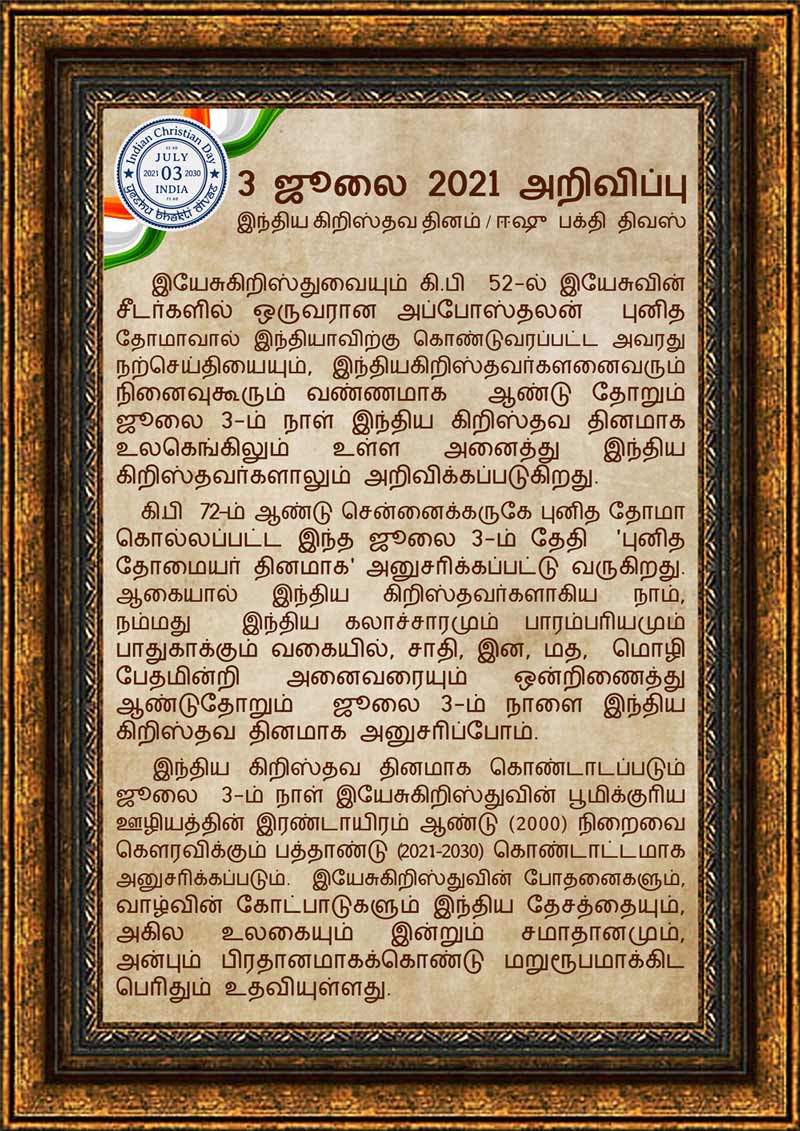 Indian Christian Day
JULY
2021 03 2030
INDIA
Yeshu Bhakti Divas
3 ஜூலை 2021 அறிவிப்பு
இந்திய கிறிஸ்தவ தினம் / ஈஷு பக்தி திவஸ்
இயேசுகிறிஸ்துவையும் கி.பி 52-ல் இயேசுவின்
சீடர்களில் ஒருவரான அப்போஸ்தலன் புனித
தோமாவால் இந்தியாவிற்கு கொண்டுவரப்பட்ட அவரது
நற்செய்தியையும், இந்தியகிறிஸ்தவர்களனைவரும்
நினைவுகூரும் வண்ணமாக ஆண்டு தோறும்
ஜூலை 3-ம் நாள் இந்திய கிறிஸ்தவ தினமாக
உலகெங்கிலும் உள்ள அனைத்து இந்திய
கிறிஸ்தவர்களாலும் அறிவிக்கப்படுகிறது.
கி.பி 72-ம் ஆண்டு சென்னைக்கருகே புனித தோமா
கொல்லப்பட்ட இந்த ஜூலை 3-ம் தேதி 'புனித
தோமையர் தினமாக' அனுசரிக்கப்பட்டு வருகிறது.
ஆகையால் இந்திய கிறிஸ்தவர்களாகிய நாம்,
நம்மது இந்திய கலாச்சாரமும் பாரம்பரியமும்
பாதுகாக்கும் வகையில், சாதி, இன, மத, மொழி
பேதமின்றி அனைவரையும் ஒன்றிணைத்து
ஆண்டுதோறும் ஜூலை 3-ம் நாளை இந்திய
கிறிஸ்தவ தினமாக அனுசரிப்போம்.
இந்திய கிறிஸ்தவ தினமாக கொண்டாடப்படும்
ஜூலை 3-ம் நாள் இயேசுகிறிஸ்துவின் பூமிக்குரிய
ஊழியத்தின் இரண்டாயிரம் ஆண்டு (2000) நிறைவை
கௌரவிக்கும் பத்தாண்டு (2021-2030) கொண்டாட்டமாக
அனுசரிக்கப்படும். இயேசுகிறிஸ்துவின் போதனைகளும்,
வாழ்வின் கோட்பாடுகளும் இந்திய தேசத்தையும்,
அகில உலகையும் இன்றும் சமாதானமும்,
அன்பும் பிரதானமாகக்கொண்டு மறுரூபமாக்கிட
பெரிதும் உதவியுள்ளது.